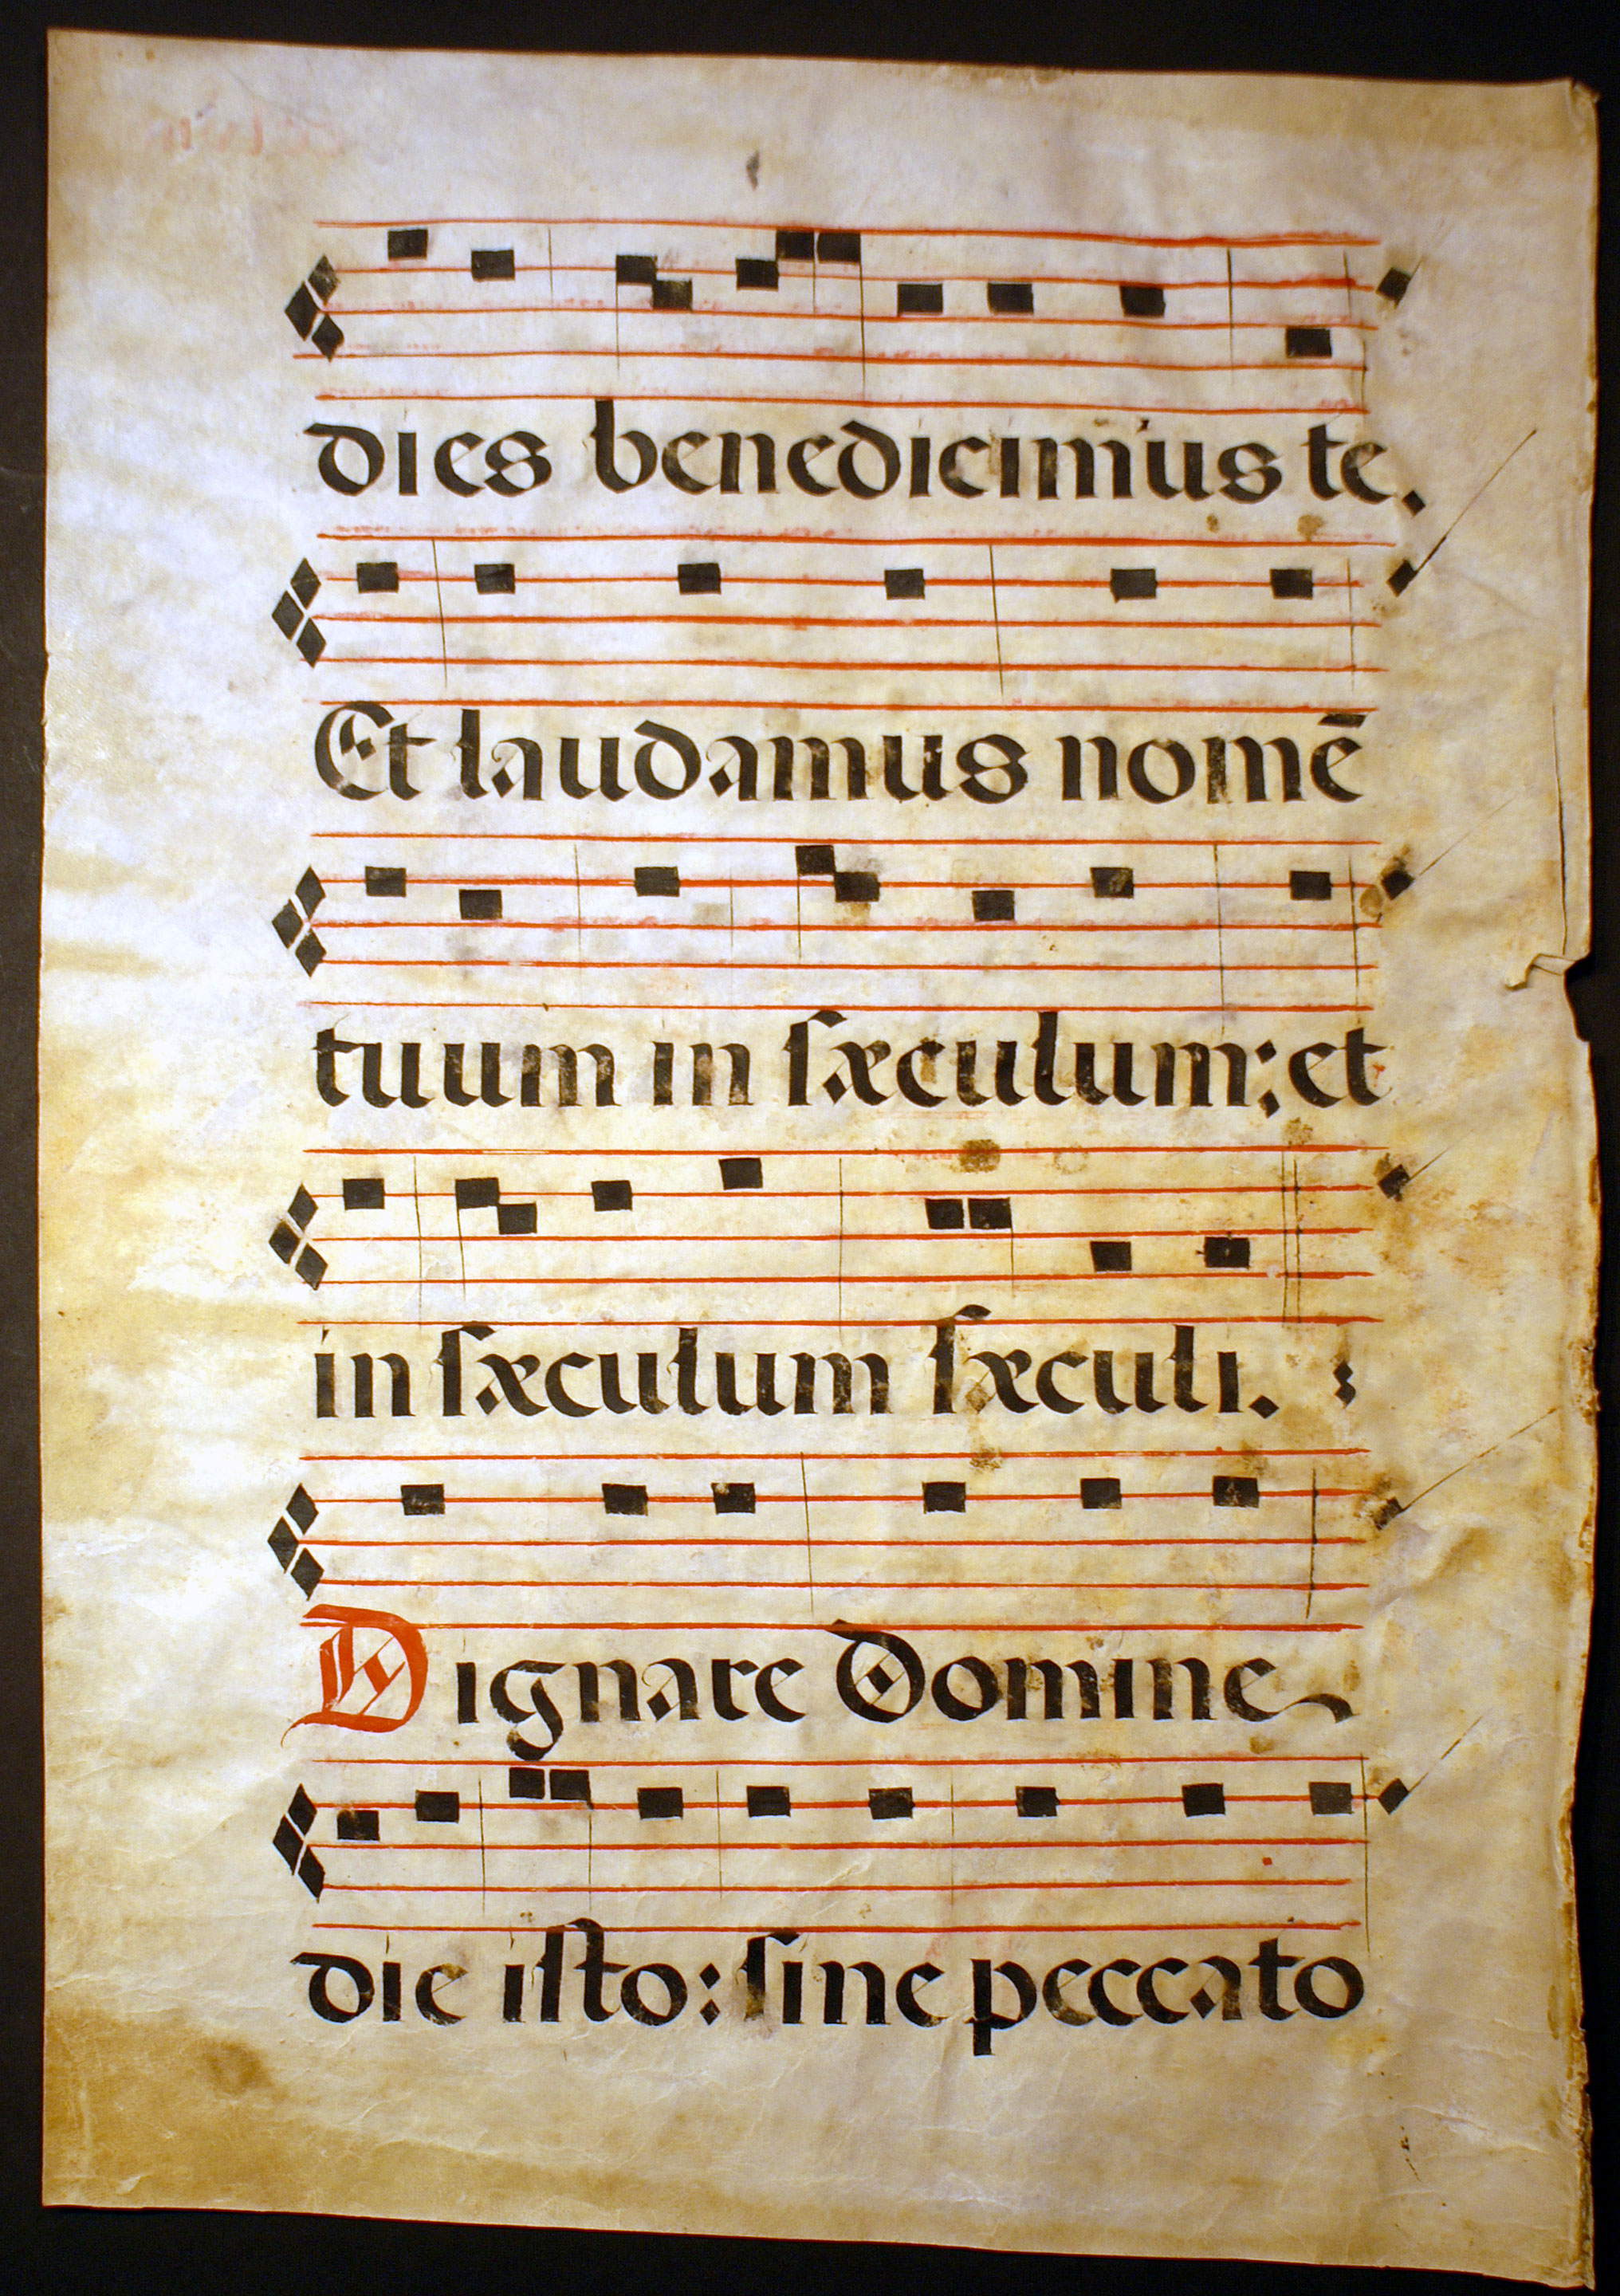 dies benedicimus te.
Et laudamus nomē
tuum in ſæculum: et
in ſæculum ſæculi. :
Dignare Domine
die iſto: ſine peccato